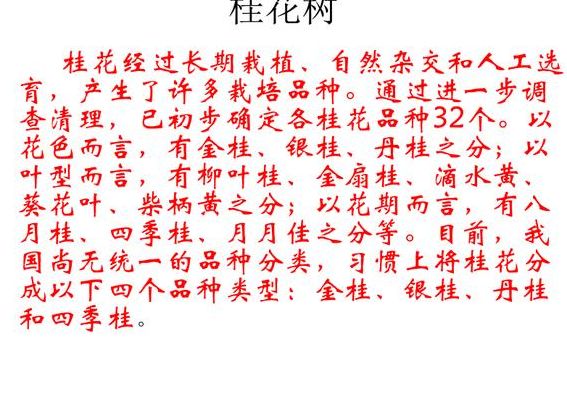 桂花树
桂花经过长期栽植、自然杂交和人工选
育，产生了许多栽培品种。通过进一步调
查清理，已初步确定各桂花品种32个。以
花色而言，有金桂、银桂、丹桂之分；以
叶型而言，有柳叶桂、金扇桂、滴水黄、
葵花叶、柴柄黄之分；以花期而言，有八
月桂、四季桂、月月佳之分等。目前，我
国尚无统一的品种分类，习惯上将桂花分
成以下四个品种类型：金桂、银桂、丹桂
和四季桂。